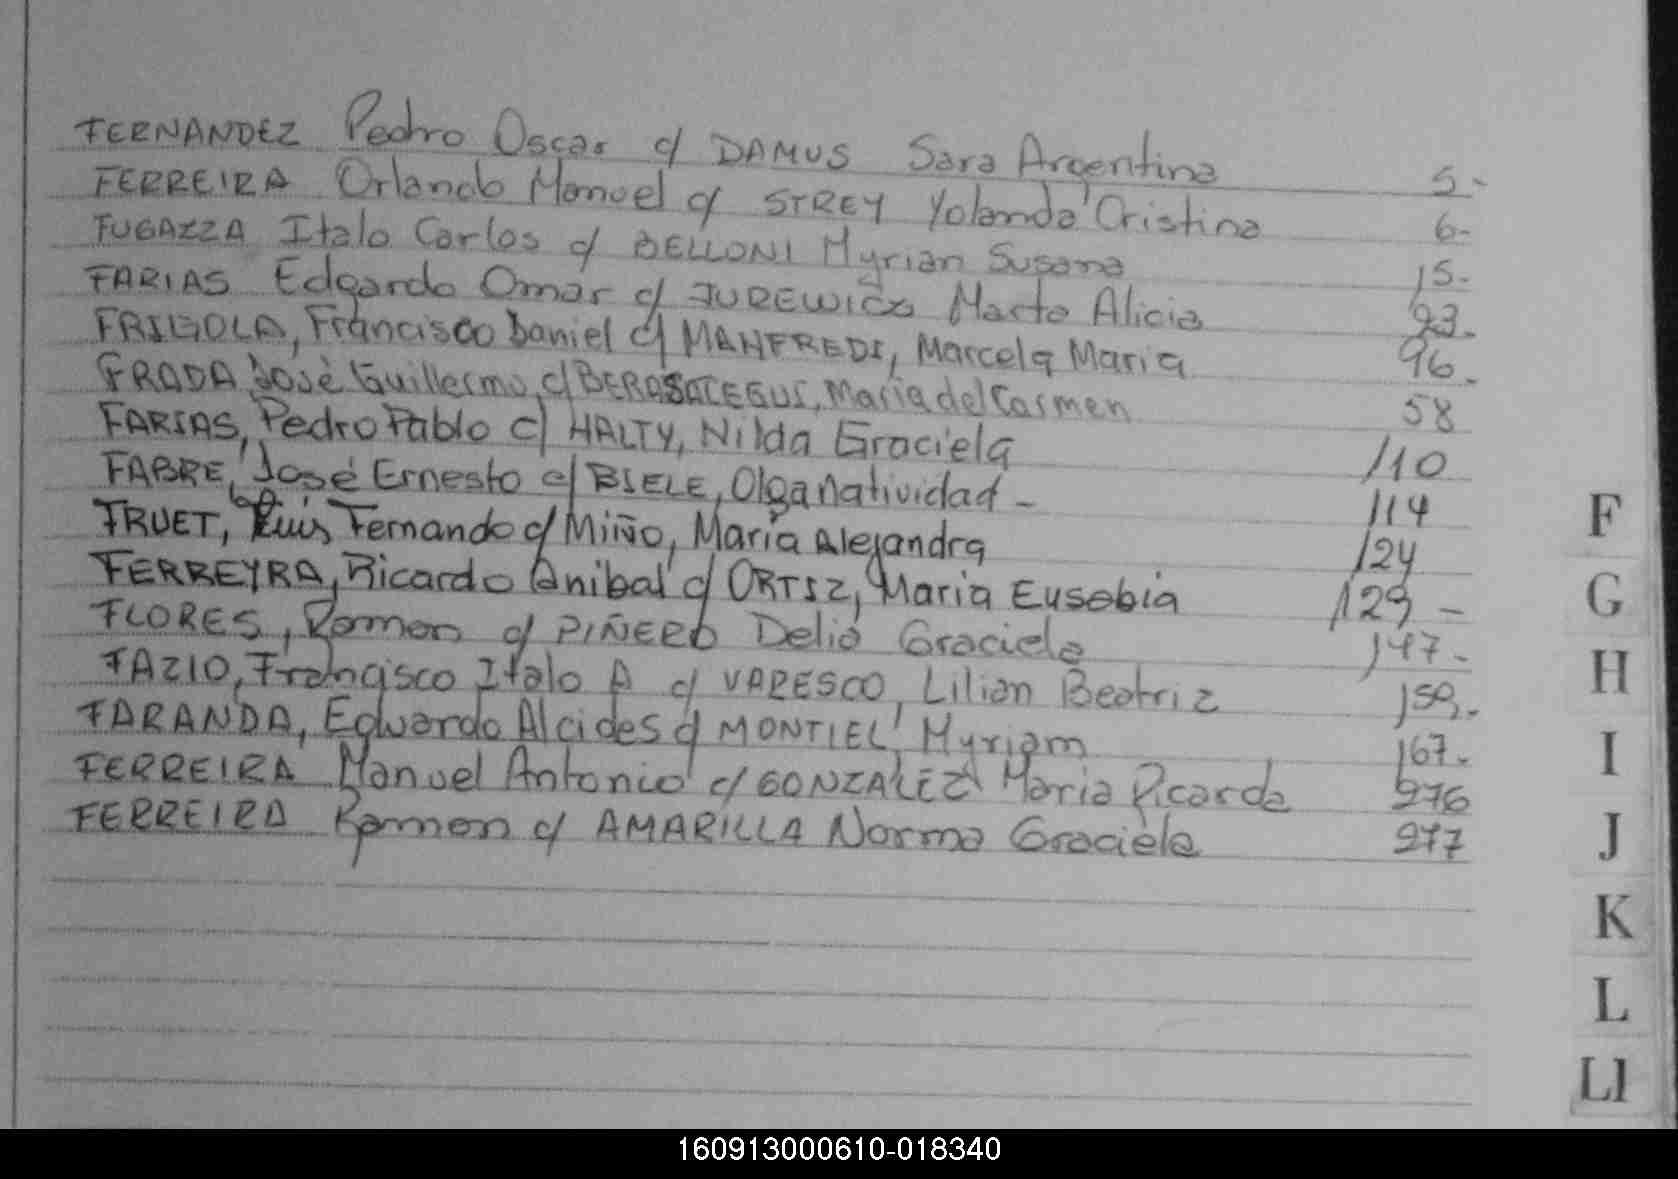 FERNANDEZ Pedro Oscar c/ DAMUS Sara Argentina 5.-
FERREIRA Orlando Manuel c/ STREY Yolanda Cristina 6.-
FUGAZZA Italo Carlos c/ BELLONI Myrian Susana 15.-
FARIAS Edgardo Omar c/ JUREWICZ Marta Alicia 93.-
FRIGOLA, Francisco Daniel c/ MANFREDI, Marcela Maria 96.-
FRADA José Guillermo c/ BERASATEGUI, Maria del Carmen 58
FARIAS, Pedro Pablo c/ HALTY, Nilda Graciela 110
FABRE, José Ernesto c/ BIELE, Olga Natividad - 114
TRUET, Luis Fernando c/ Miño, María Alejandra 124
FERREYRA, Ricardo Anibal c/ ORTIZ, Maria Eusebia 129 -
FLORES, Ramon c/ PIÑERO Delia Graciela 147.-
FAZIO, Francisco Italo A c/ VARESCO, Lilian Beatriz 159.-
FARANDA, Eduardo Alcides c/ MONTIEL, Myriam 167.-
FERREIRA Manuel Antonio c/ GONZALEZ Maria Ricarda 276
FERREIRA Ramon c/ AMARILLA Norma Graciela 277
F
G
H
I
J
K
L
Ll
160913000610-018340